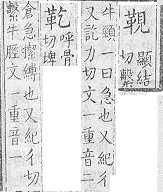 顯結
切繫
牛頸一曰急也又紀彳
又訖力切文一重音二
呼骨
切埤
倉急縛也又紀彳切
繫牛脛文一重音一